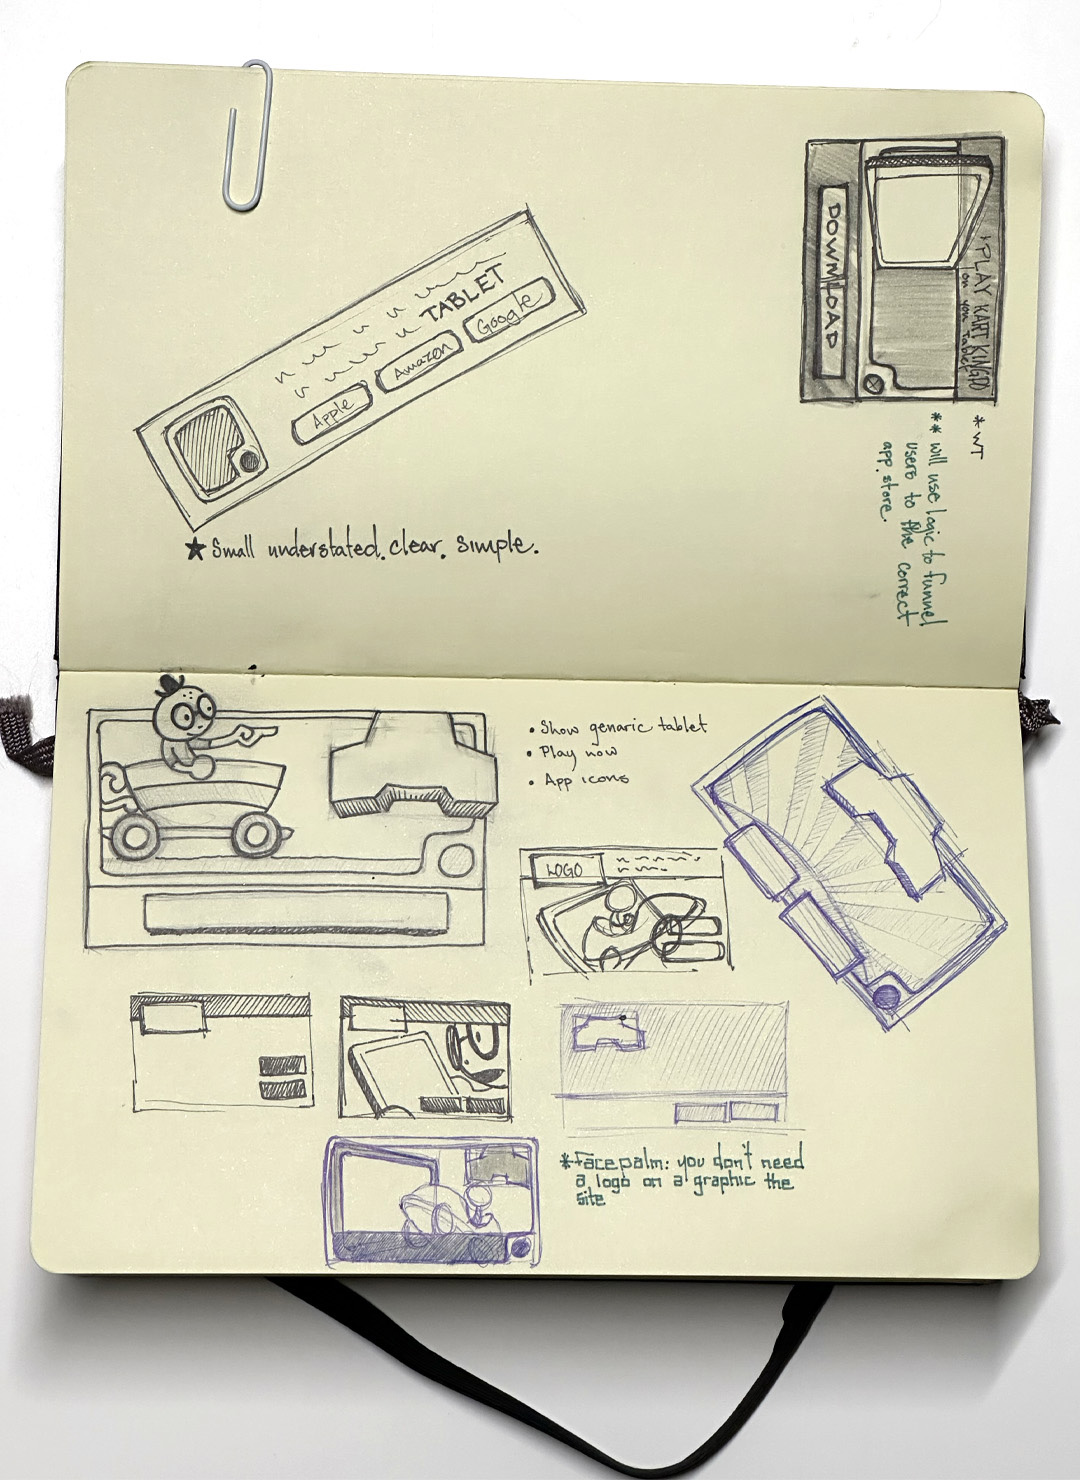 TABLET
Apple
Amazon
Google
★ Small understated. clear. simple.
PLAY KART KINGDO
on your Tablet
DOWNLOAD
* WT
** will use logic to funnel
users to the correct
app store.
• Show genaric tablet
• Play now
• App icons
LOGO
*Facepalm: you don't need
a logo on a graphic the
site